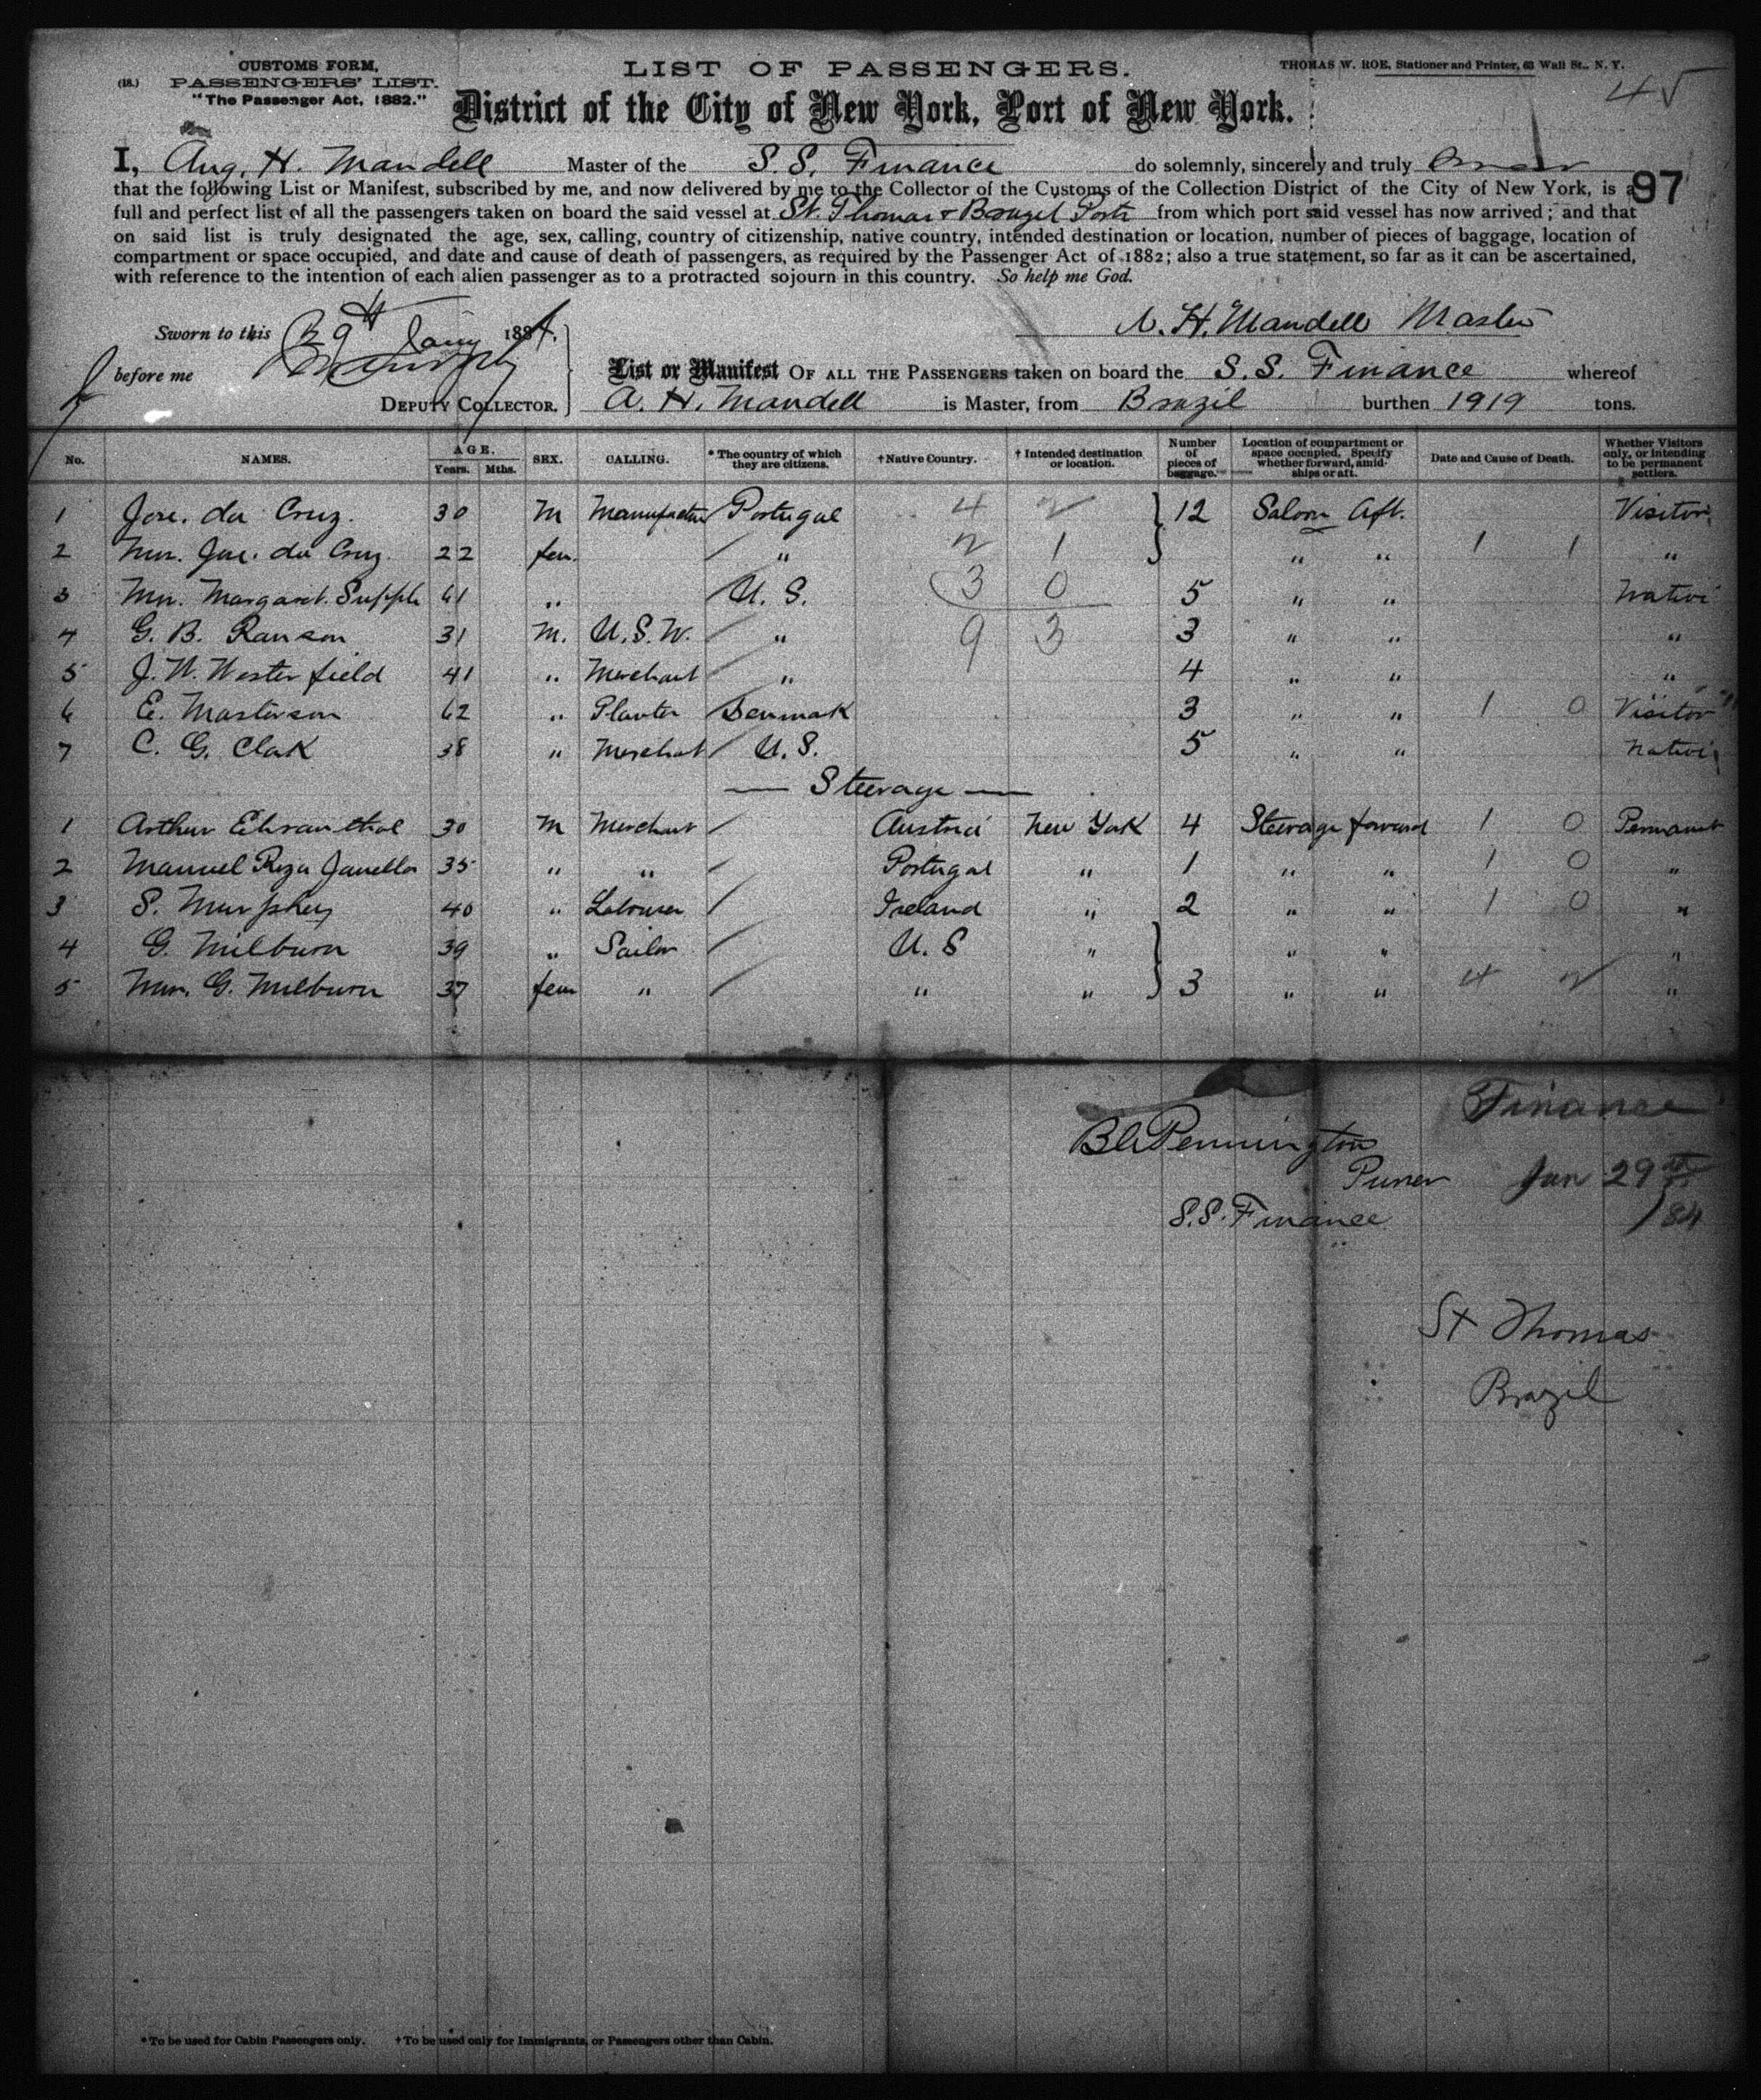 CUSTOMS FORM,
(18.) PASSENGERS' LIST.
"The Passenger Act, 1882."
LIST OF PASSENGERS.
THOMAS W. ROE, Stationer and Printer, 63 Wall St., N. Y.
District of the City of New York, Port of New York.
I, Aug. H. Mandell Master of the S. S. Finance do solemnly, sincerely and truly
that the following List or Manifest, subscribed by me, and now delivered by me to the Collector of the Customs of the Collection District of the City of New York, is a 97
full and perfect list of all the passengers taken on board the said vessel at St. Thomas & Brazil Ports from which port said vessel has now arrived; and that
on said list is truly designated the age, sex, calling, country of citizenship, native country, intended destination or location, number of pieces of baggage, location of
compartment or space occupied, and date and cause of death of passengers, as required by the Passenger Act of 1882; also a true statement, so far as it can be ascertained,
with reference to the intention of each alien passenger as to a protracted sojourn in this country. So help me God.
A. H. Mandell Master
Sworn to this 29th Jany 1884.
before me
DEPUTY COLLECTOR.
List or Manifest OF ALL THE PASSENGERS taken on board the S. S. Finance whereof
A. H. Mandell is Master, from Brazil burthen 1919 tons.
No. NAMES. AGE. Years. Mths. SEX. CALLING. * The country of which they are citizens. † Native Country. † Intended destination or location. Number of pieces of baggage. Location of compartment or space occupied. Specify whether forward, amidships or aft. Date and Cause of Death. Whether Visitors only, or intending to be permanent settlers.
1 Jose. da Cruz. 30 M Manufactur Portugal 4 2 12 Saloon Aft. Visitor
2 Mrs. Jose. da Cruz. 22 fem. " 2 1 " " 1 1 "
3 Mrs. Margaret Supple 61 " U. S. 3 0 5 " " Native
4 G. B. Ranson 31 M. U.S.N. " 9 3 3 " " "
5 J. W. Westerfield 41 " Merchant " 4 " " "
6 E. Masterson 62 " Planter Denmark 3 " " 1 0 Visitor
7 C. G. Clark 38 " Merchant U. S. 5 " " Native
— Steerage —
1 Arthur Ehranthal 30 M Merchant Austria New York 4 Steerage forward 1 0 Permanent
2 Manuel 35 " " Portugal " 1 " " 1 0 "
3 S. Murphey 40 " Labourer Ireland " 2 " " 1 0 "
4 G. Milburn 39 " Sailor U. S " " " "
5 Mrs. G. Milburn 37 fem " " " 3 " " 4 2 "
Finance
Pennington
Purser Jan 29th
S.S. Finance /84
St Thomas
Brazil
* To be used for Cabin Passengers only. † To be used only for Immigrants, or Passengers other than Cabin.